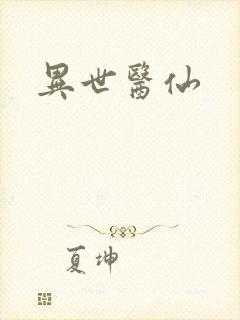 異世醫仙
夏坤